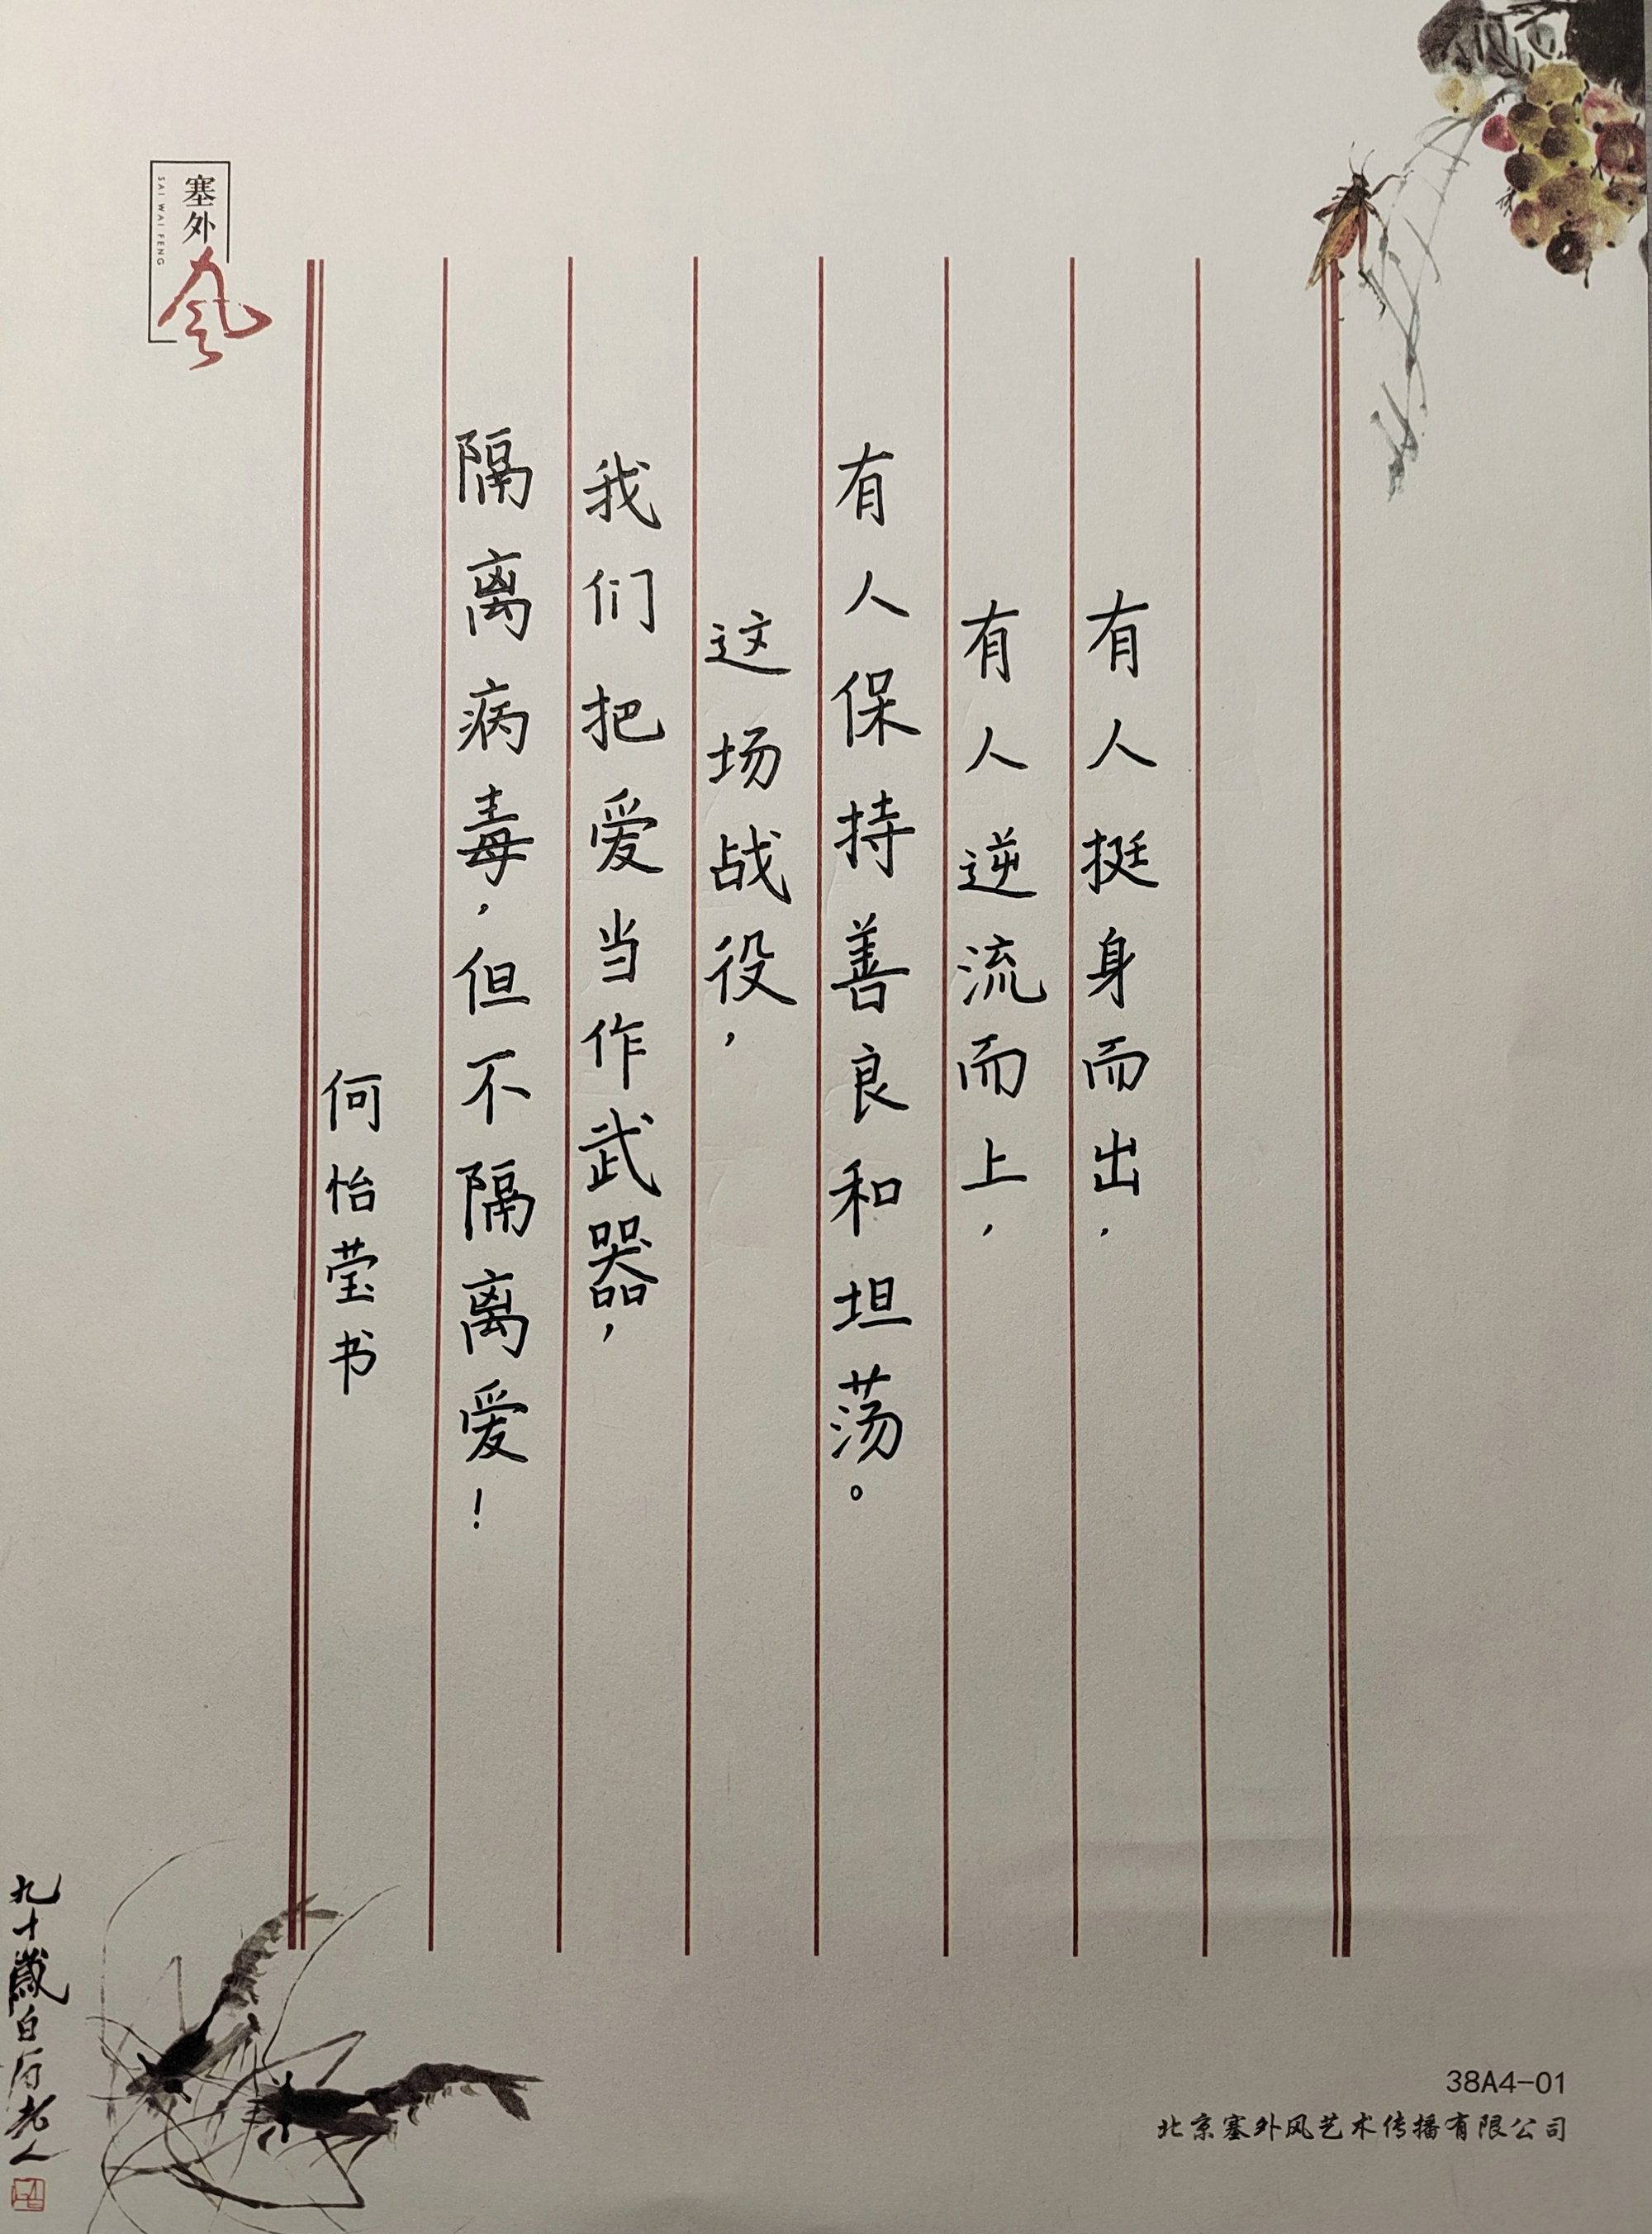 有人挺身而出，
有人逆流而上，
有人保持善良和坦荡。
这场战役，
我们把爱当作武器，
隔离病毒，但不隔离爱！
何怡莹书
塞外风
SAI WAI FENG
九十岁白石老人
38A4-01
北京塞外风艺术传播有限公司